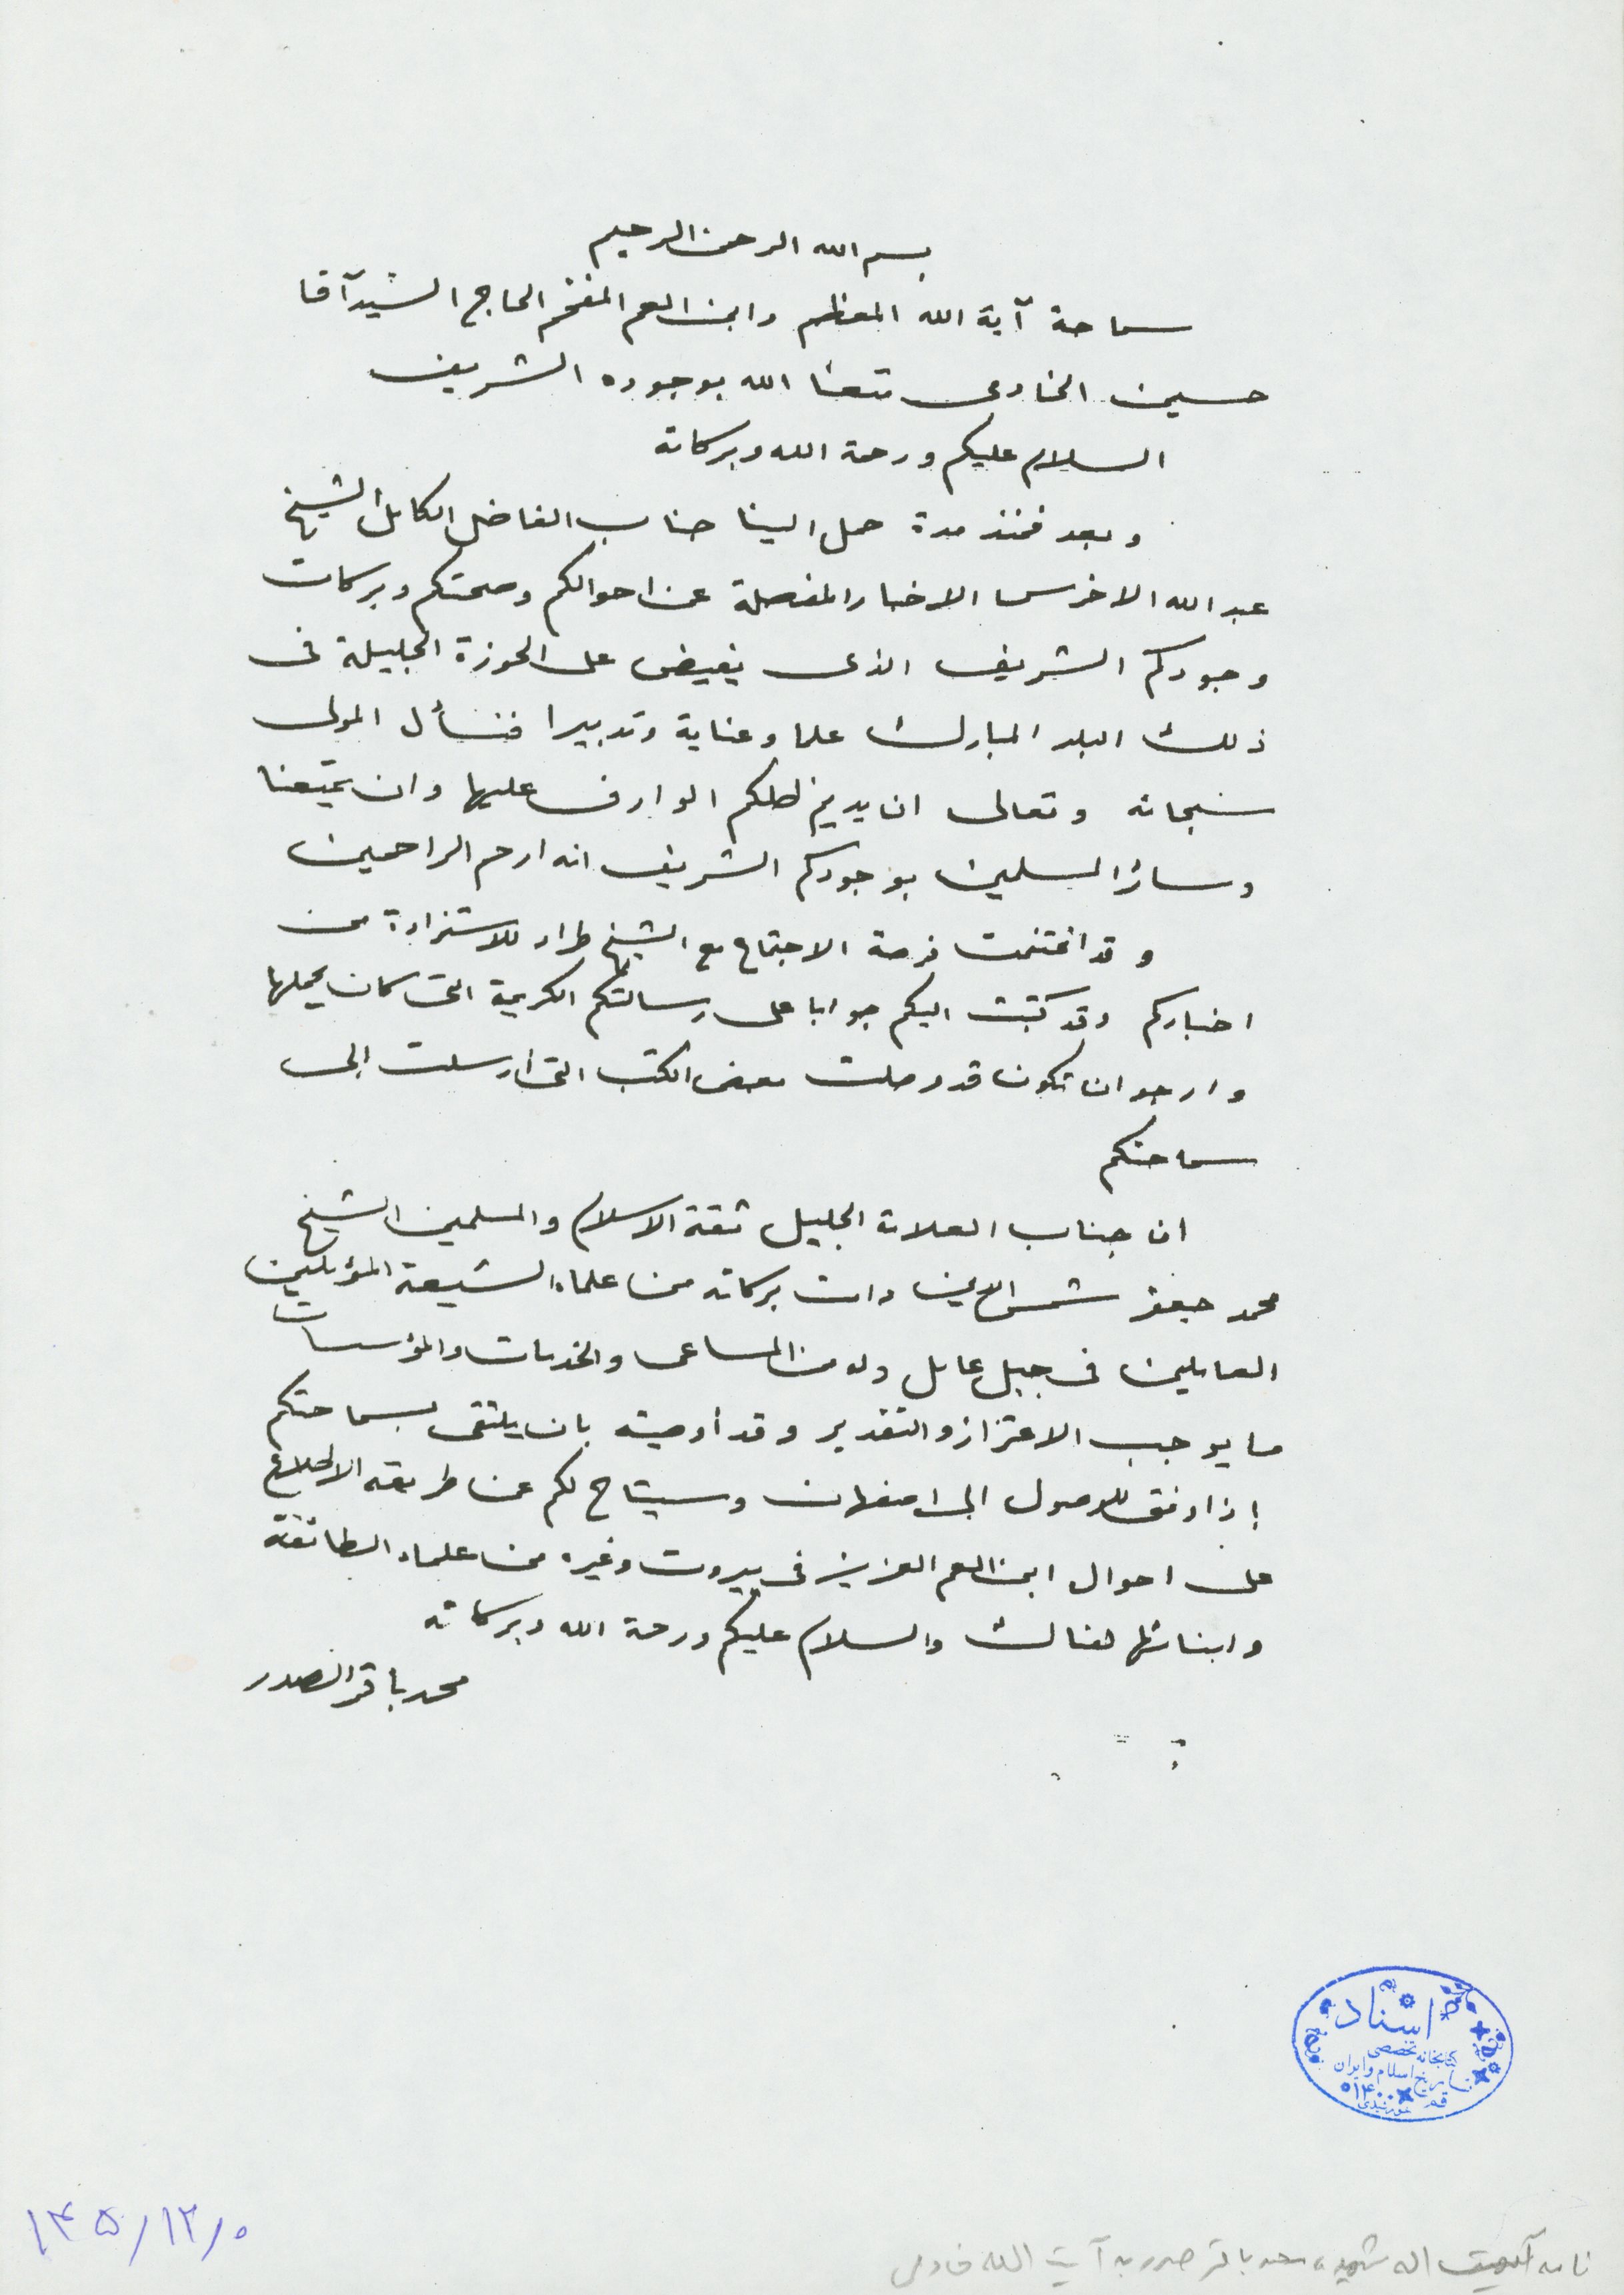 بسم الله الرحمن الرحيم
سماحة آية الله المعظم وابن العم المفخم الحاج السيد آقا
حسين الخادمى متعنا الله بوجوده الشريف
السلام عليكم ورحمة الله وبركاته
وبعد فمنذ مدة حمل الينا جناب الفاضل الكامل الشيخ
عبد الله الاخرس الاخبار المفصلة عن احوالكم وصحتكم وبركات
وجودكم الشريف الذى يفيض على الحوزة الجليلة فى
ذلك البلد المبارك علما وعناية وتدبيرا فنسأل المولى
سبحانه وتعالى ان يديم ظلكم الوارف عليها وان يمتعنا
وسائر المسلمين بوجودكم الشريف انه ارحم الراحمين
وقد اغتنمت فرصة الاجتماع مع الشيخ طراد للاستزادة من
اخباركم وقد كتبت اليكم جوابا على رسالتكم الكريمة التى كان يحملها
وارجو ان تكون قد وصلت بعض الكتب التى ارسلت الى
سماحتكم
ان جناب العلامة الجليل ثقة الاسلام والمسلمين الشيخ
محمد جعفر شمس الدين دامت بركاته من علماء الشيعة
العاملين فى جبل عامل وله من المساعى والخدمات والمؤسسات
ما يوجب الاعتزاز والتقدير وقد أوصيته بان يلتقى بسماحتكم
إذا وفق للوصول الى اصفهان وسيتاح لكم عن طريقه الاطلاع
على احوال ابن العم العزيز فى بيروت وغيره من علماء الطائفة
وابنائها هنالك والسلام عليكم ورحمة الله وبركاته
محمد باقر الصدر
اسناد
كتابخانه تخصصى
تاريخ اسلام و ايران
قم
۱۴۵/۱۲/۰
نامه آيت اله شهيد محمد باقر صدر به آيت الله خادمى